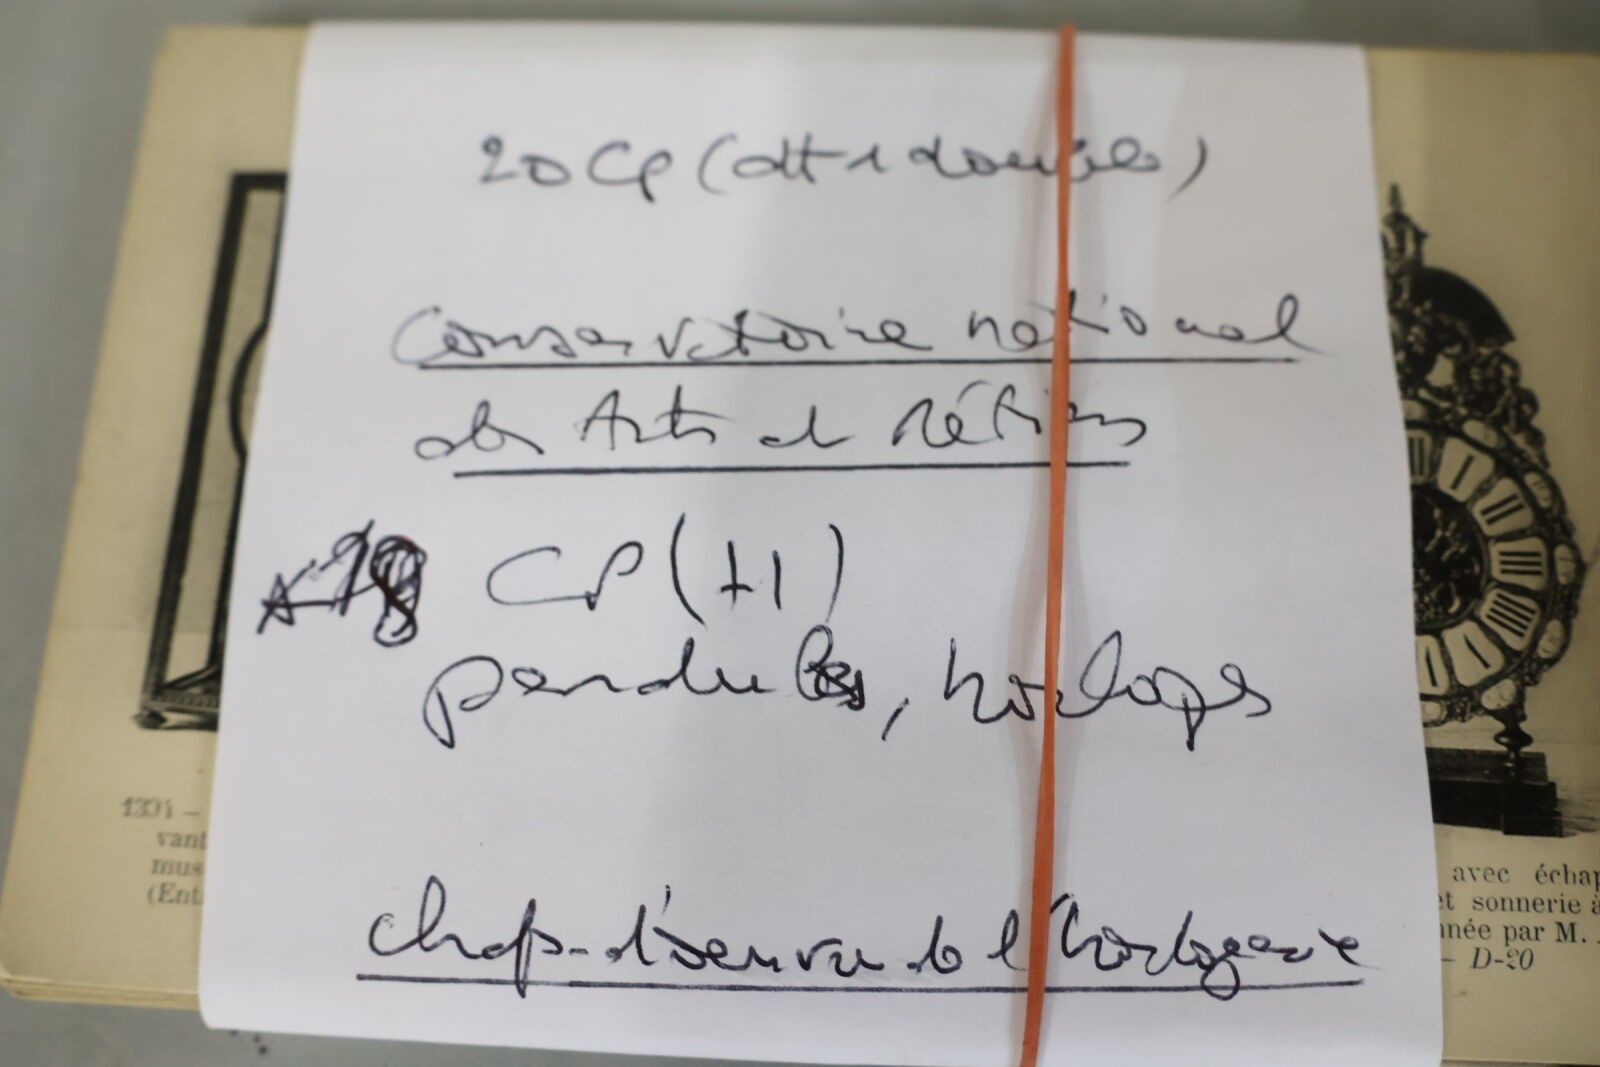 20 CP (dt 1 double)
Conservatoire national
des Arts et Métiers
CP (+1)
pendules, horloges
chefs-d'oeuvre de l'horlogerie
1391 –
vant
mus
(Ent
avec échap
et sonnerie à
nnée par M.
– D-20